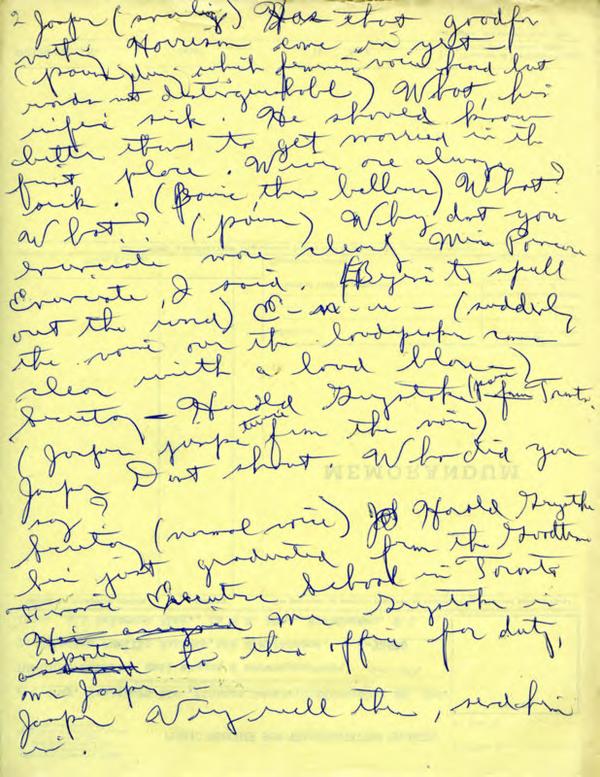 2 Jasper (snarling) Has that goodfor
nothing Harrison come in yet –
(pause, during which feminine voice heard but
words not distinguishable) What, his
wife's sick. He should know
better than to get married in the
first place. Wives are always
sick. (Pause, then bellows) What?
What? (pause) Why don't you
enunciate more clearly Miss
Enunciate, I said. (Begins to spell
out the word) E-n-u- (suddenly
the voice over the loudspeaker
clear with a loud blare –)
Secretary – Harold Greystoke from Toronto.
(Jasper jumps twice from the voice)
Jasper Don't shout. Who did you
say?
Secretary (normal voice) Harold Greystoke
has just graduated from the
Executive School in Toronto
Mr Greystoke is
His assigned
reporting to this office for duty,
Mr Jasper –
Jasper Very well then, send him
in.
MEMORANDUM